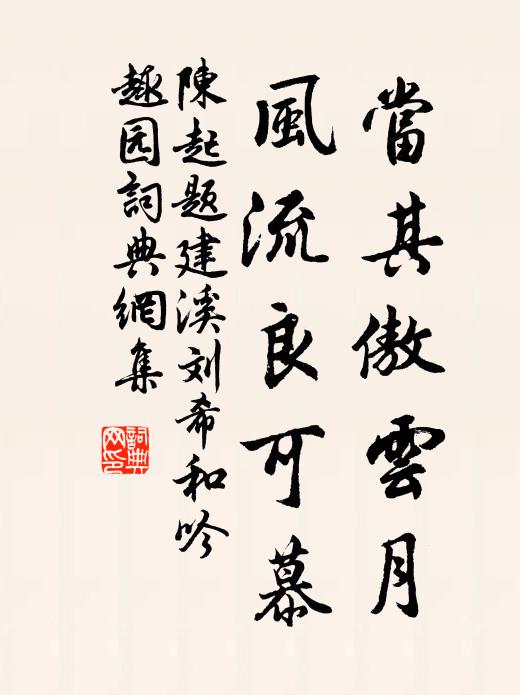 當其傲雲月
風流良可慕
陳起题建溪刘希和吟
趣园詞典網集
詞典
网印